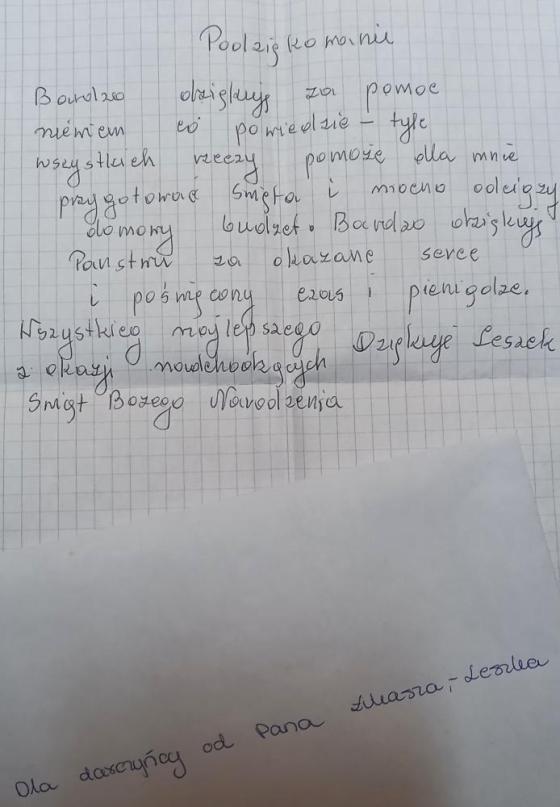 Podziękowanie
Bardzo dziękuję za pomoc
niewiem co powiedzie - tyle
wszystkich rzeczy pomoże dla mnie
przygotować święta i mocno odciąży
domowy budzet. Bardzo dziękuję
Państwu za okazane serce
i poświęcony czas i pieniądze.
Wszystkieg najlepszego Dziękuje Leszek
z okazji nadchodzących
Świąt Bozego Narodzenia
Dla darczyńcy od Pana Leszka